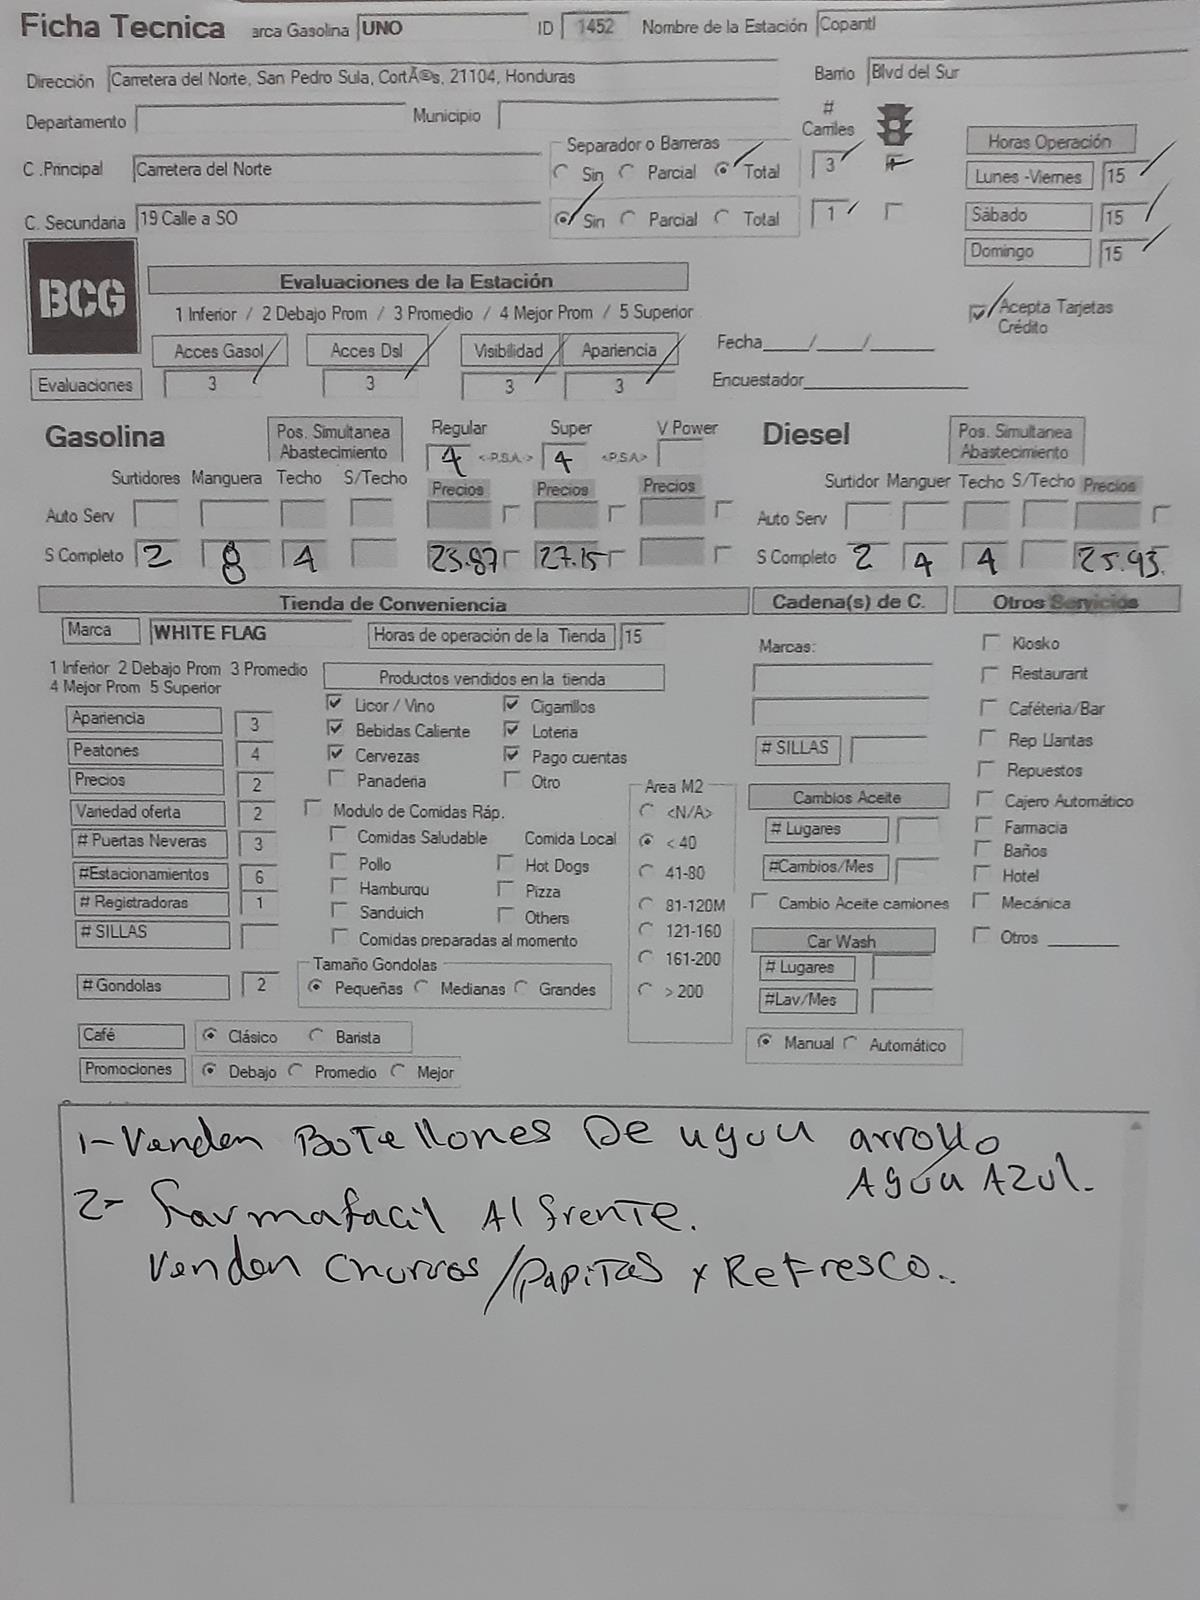 Ficha Tecnica arca Gasolina UNO ID 1452 Nombre de la Estación Copantl
Dirección Carretera del Norte, San Pedro Sula, CortÃ©s, 21104, Honduras Barrio Blvd del Sur
Departamento Municipio # Carriles
Separador o Barreras Horas Operación
C .Principal Carretera del Norte Sin Parcial Total 3 Lunes -Viernes 15
C. Secundaria 19 Calle a SO Sin Parcial Total 1 Sábado 15
Domingo 15
BCG Evaluaciones de la Estación
1 Inferior / 2 Debajo Prom / 3 Promedio / 4 Mejor Prom / 5 Superior
Acepta Tarjetas Crédito
Acces Gasol Acces Dsl Visibilidad Apariencia Fecha____/____/_____
Evaluaciones 3 3 3 3 Encuestador____________
Gasolina Pos. Simultanea Abastecimiento Regular Super V Power Diesel Pos. Simultanea Abastecimiento
4 <-P.S.A-> 4 <P.S.A>
Surtidores Manguera Techo S/Techo Precios Precios Precios Surtidor Manguer Techo S/Techo Precios
Auto Serv Auto Serv
S Completo 2 8 4 23.87 27.15 S Completo 2 4 4 25.93.
Tienda de Conveniencia Cadena(s) de C. Otros Servicios
Marca WHITE FLAG Horas de operación de la Tienda 15 Marcas: Kiosko
1 Inferior 2 Debajo Prom 3 Promedio
4 Mejor Prom 5 Superior
Productos vendidos en la tienda Restaurant
Apariencia 3 Licor / Vino Cigarrillos Caféteria/Bar
Peatones 4 Bebidas Caliente Loteria # SILLAS Rep Llantas
Precios 2 Cervezas Pago cuentas Repuestos
Panaderia Otro Area M2 Cambios Aceite Cajero Automático
Variedad oferta 2 Modulo de Comidas Ráp. <N/A> # Lugares Farmacia
# Puertas Neveras 3 Comidas Saludable Comida Local < 40 Baños
#Estacionamientos 6 Pollo Hot Dogs 41-80 #Cambios/Mes Hotel
# Registradoras 1 Hamburqu Pizza 81-120M Cambio Aceite camiones Mecánica
# SILLAS Sanduich Others 121-160 Car Wash Otros ________
Comidas preparadas al momento 161-200 # Lugares
# Gondolas 2 Tamaño Gondolas
Pequeñas Medianas Grandes > 200 #Lav/Mes
Café Clásico Barista Manual Automático
Promociones Debajo Promedio Mejor
1- Venden Botellones De agua arroyo
Agua Azul.
2- Farmafacil Al frente.
Venden Churros /Papitas y Refresco.